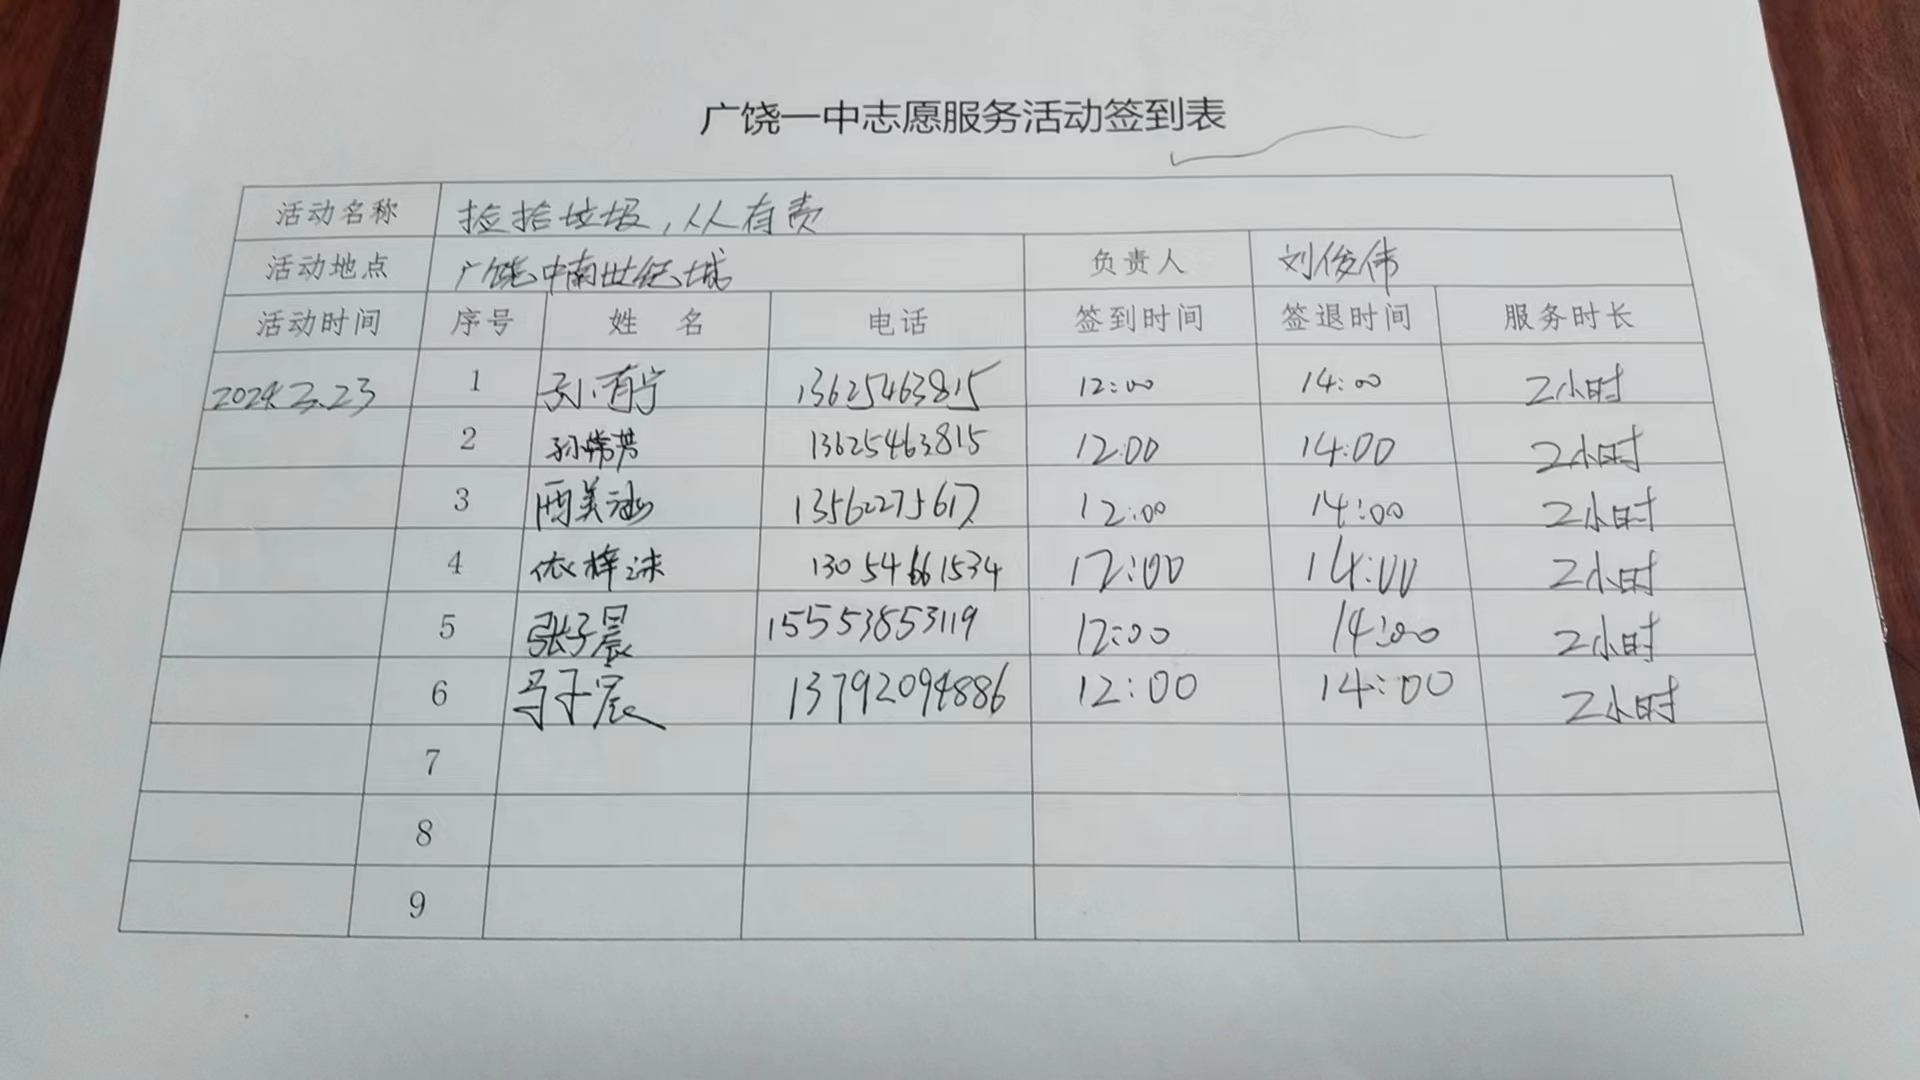 广饶一中志愿服务活动签到表
活动名称 捡拾垃圾,人人有责
活动地点 广饶中南世纪城 负责人 刘俊伟
活动时间 序号 姓 名 电话 签到时间 签退时间 服务时长
2024.2.23 1 孙宁 13625463815 12:00 14:00 2小时
2 孙芳 13625463815 12:00 14:00 2小时
3 西美涵 13562275617 12:00 14:00 2小时
4 依梓沫 13054661534 12:00 14:00 2小时
5 张子晨 15553853119 12:00 14:00 2小时
6 马子宸 13792094886 12:00 14:00 2小时
7
8
9